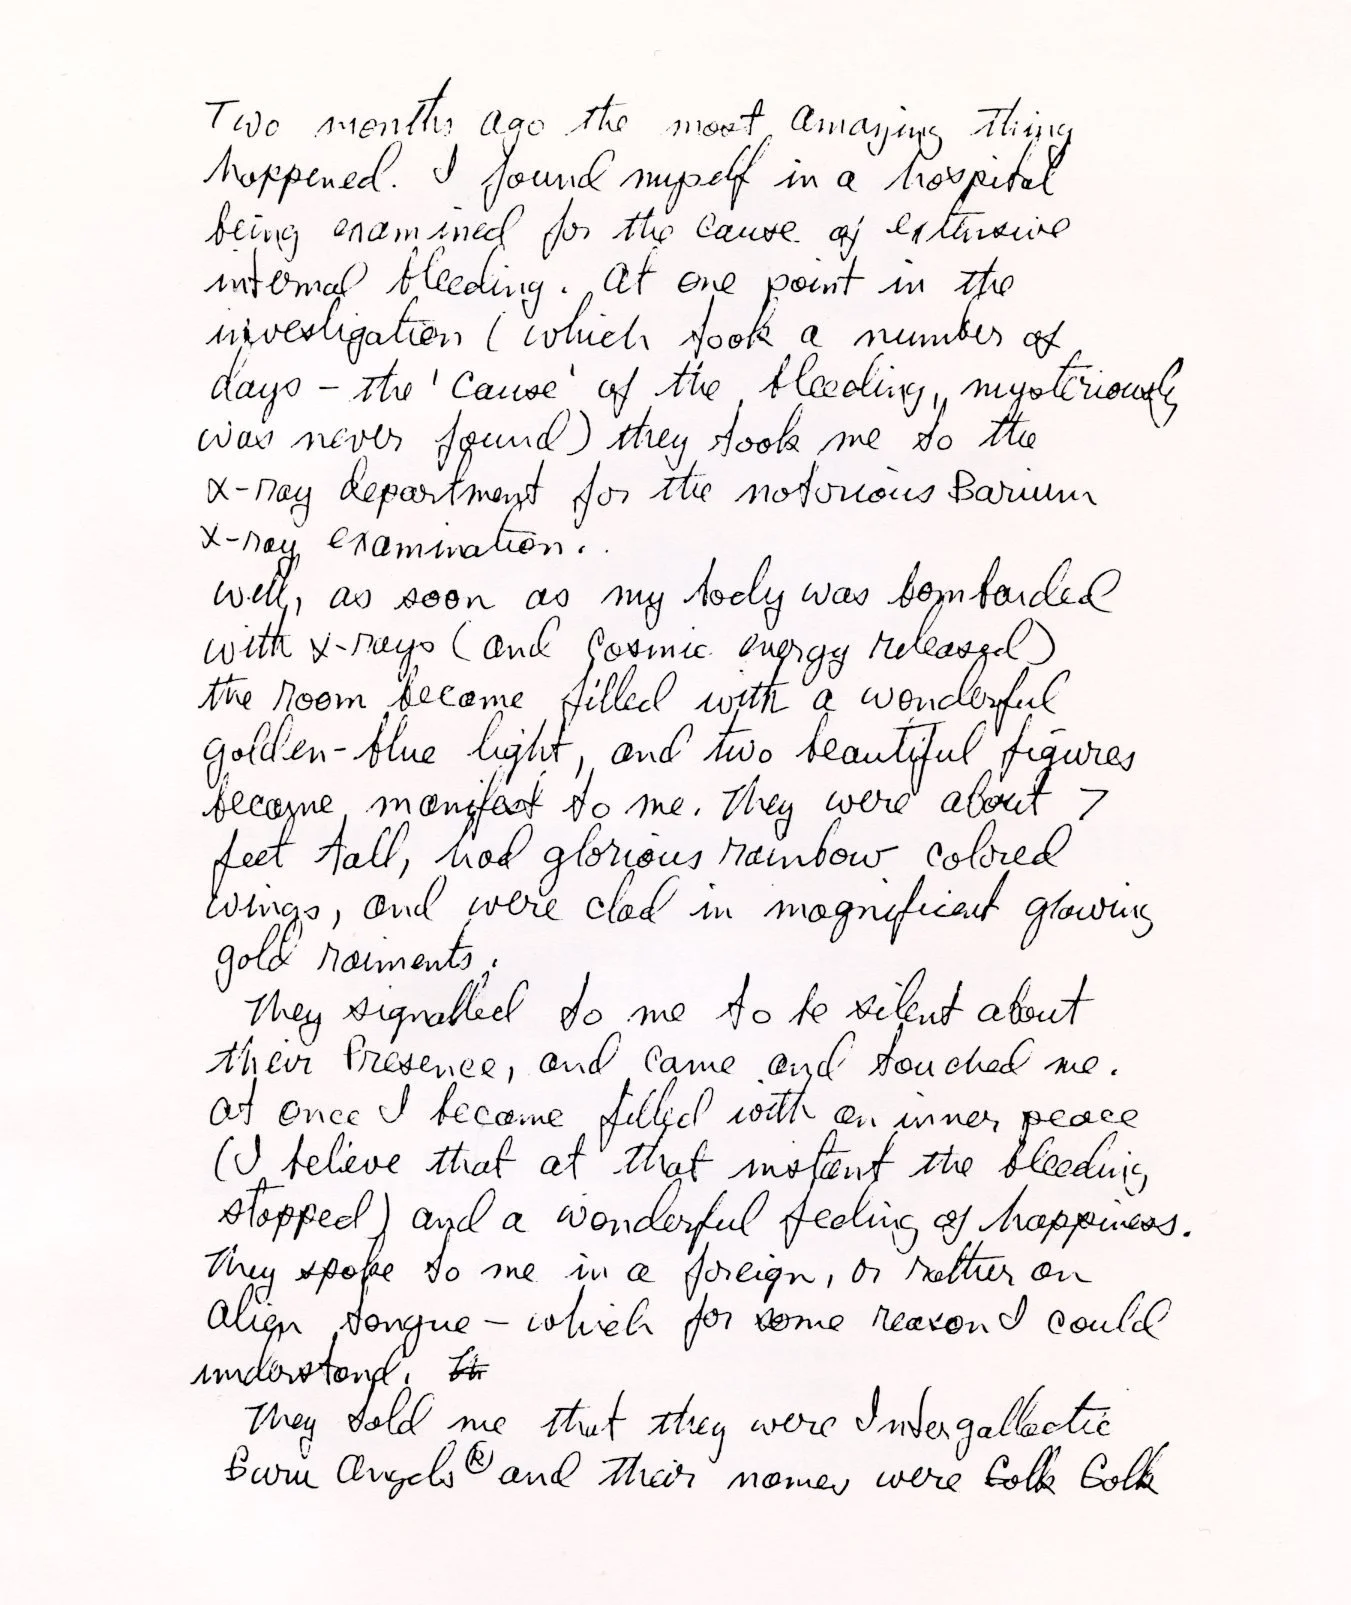 Two months ago the most amazing thing
happened. I found myself in a hospital
being examined for the cause of extensive
internal bleeding. At one point in the
investigation (which took a number of
days - the 'cause' of the bleeding, mysteriously
was never found) they took me to the
x-ray department for the notorious Barium
x-ray examination.
Well, as soon as my body was bombarded
with x-rays (and cosmic energy released)
the room became filled with a wonderful
golden-blue light, and two beautiful figures
became manifest to me. They were about 7
feet tall, had glorious rainbow colored
wings, and were clad in magnificent glowing
gold raiments.
They signalled to me to be silent about
their Presence, and came and touched me.
At once I became filled with an inner peace
(I believe that at that instant the bleeding
stopped) and a wonderful feeling of happiness.
They spoke to me in a foreign, or rather an
align tongue - which for some reason I could
understand.
They told me that they were Intergallactic
Angels® and their names were